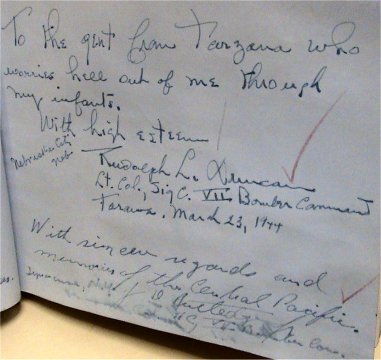 To the gent from Tarzana who
worries hell out of me through
my infants.
With high esteem
Nebraska City
Neb
Rudolph L. Duncan
Lt. Col., Sig C. VII Bomber Command
Tarawa. March 23, 1944
With sincere regards and
memories of the Central Pacific.
Rutledge
Bomber Com.